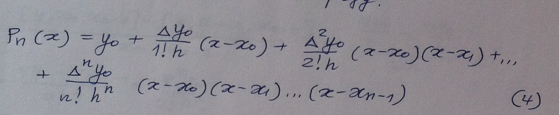 Pn(x) = y₀ + Δy₀/1! h (x-x₀) + Δ²y₀/2! h (x-x₀)(x-x₁) + ...
+ Δⁿy₀/n! hⁿ (x-x₀)(x-x₁)...(x-xₙ₋₁) (4)